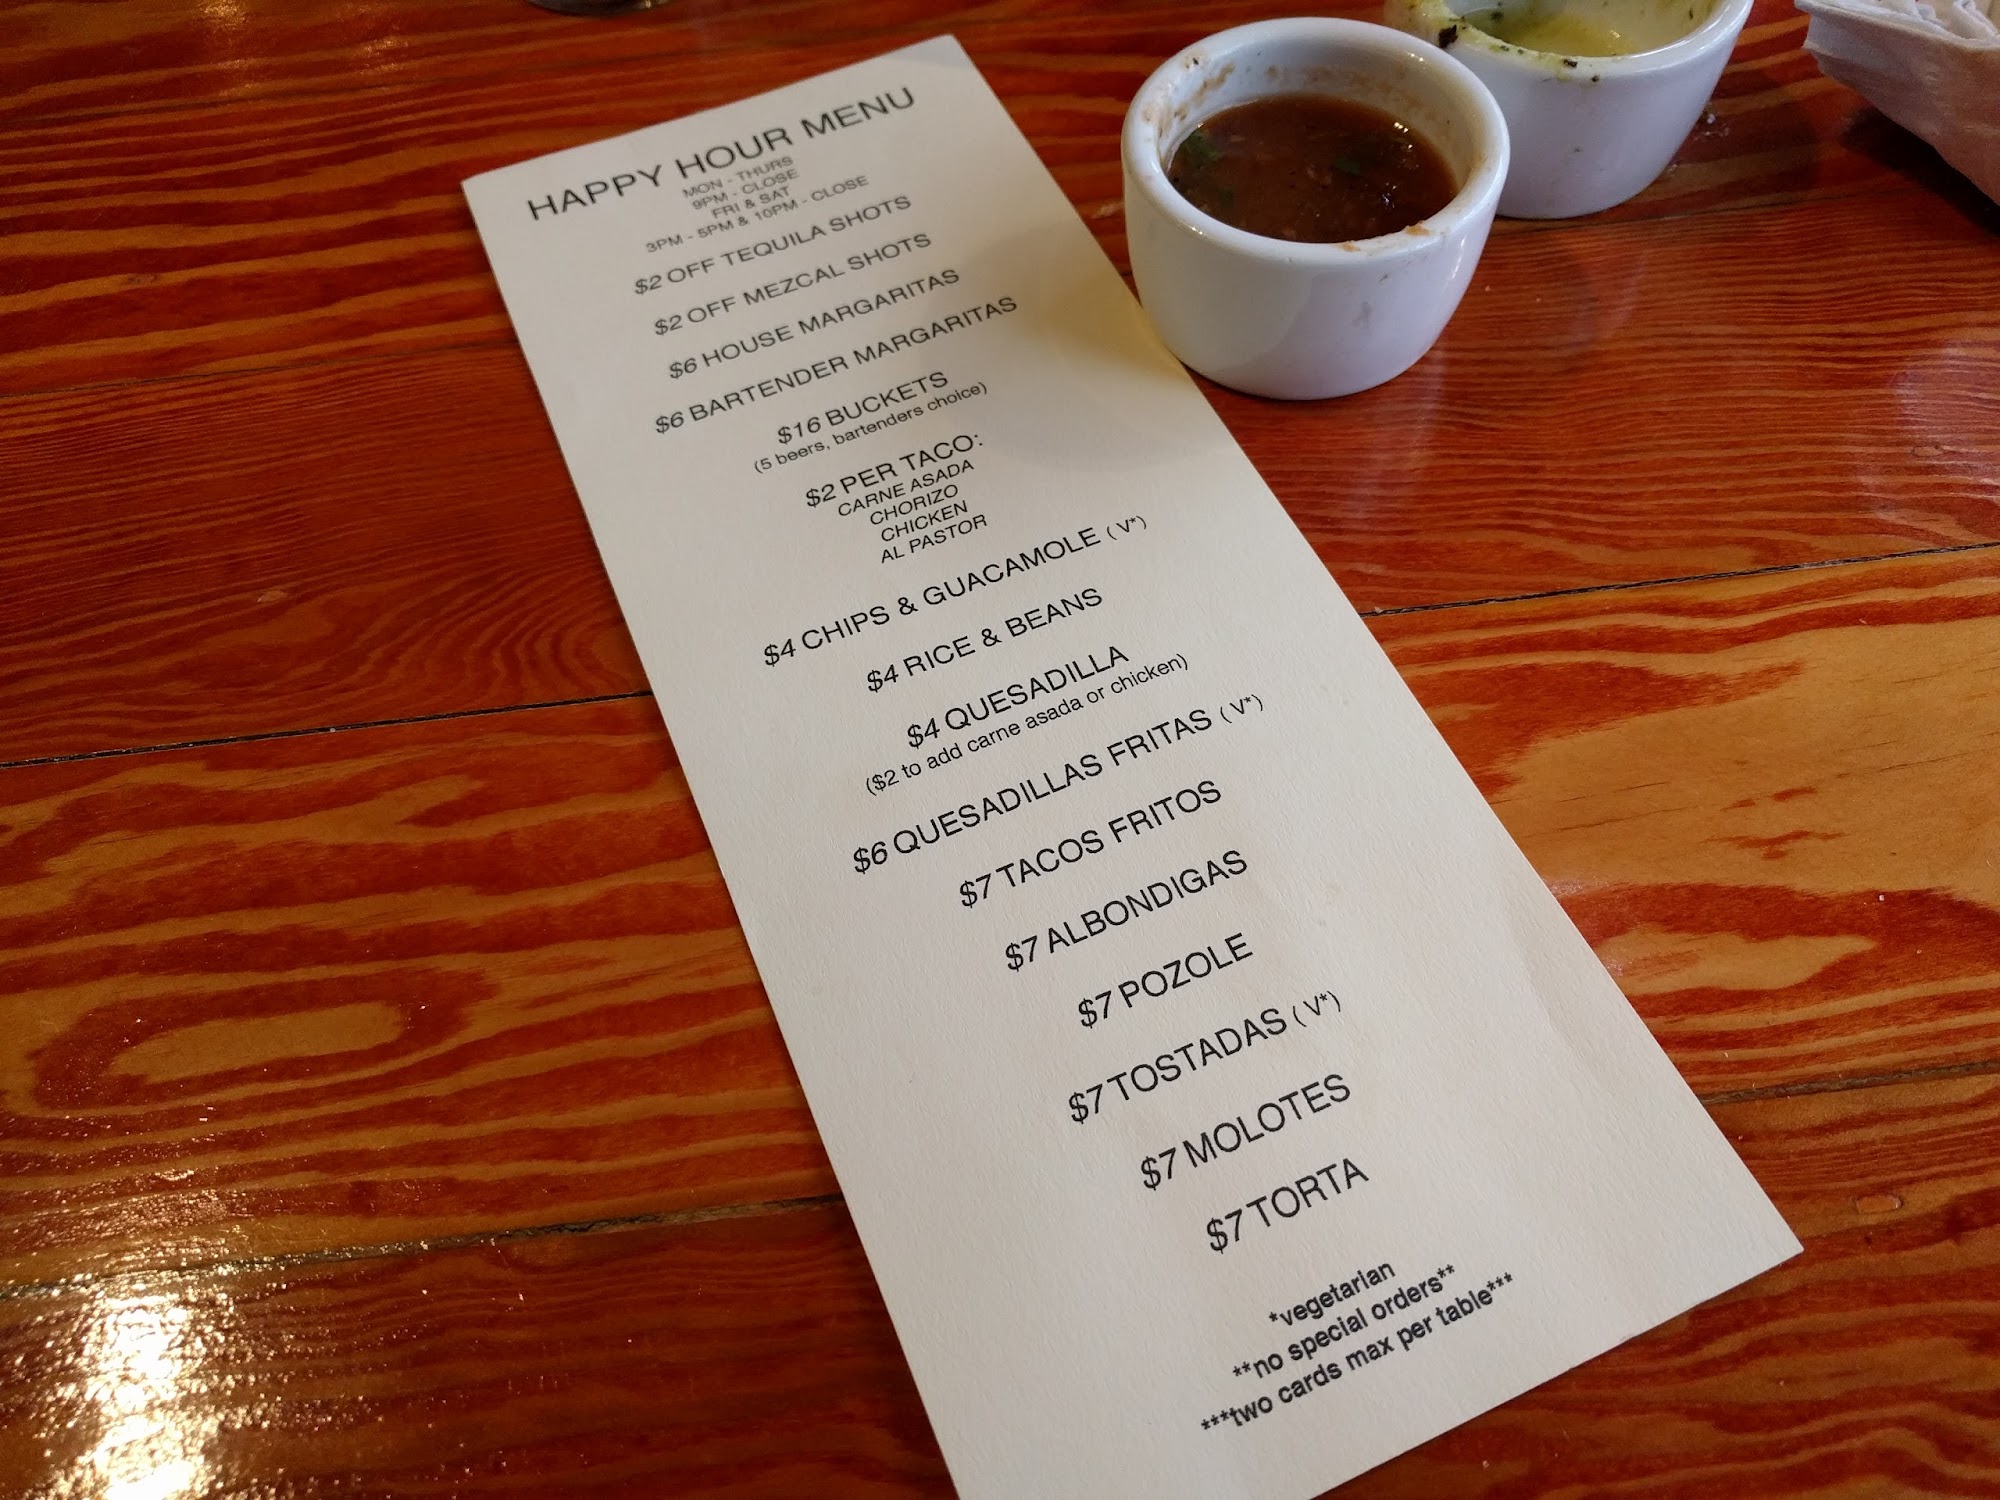 HAPPY HOUR MENU
MON - THURS
9PM - CLOSE
FRI & SAT
3PM - 5PM & 10PM - CLOSE
$2 OFF TEQUILA SHOTS
$2 OFF MEZCAL SHOTS
$6 HOUSE MARGARITAS
$6 BARTENDER MARGARITAS
$16 BUCKETS
(5 beers, bartenders choice)
$2 PER TACO:
CARNE ASADA
CHORIZO
CHICKEN
AL PASTOR
$4 CHIPS & GUACAMOLE ( V*)
$4 RICE & BEANS
$4 QUESADILLA
($2 to add carne asada or chicken)
$6 QUESADILLAS FRITAS ( V*)
$7 TACOS FRITOS
$7 ALBONDIGAS
$7 POZOLE
$7 TOSTADAS ( V*)
$7 MOLOTES
$7 TORTA
*vegetarian
**no special orders**
***two cards max per table***